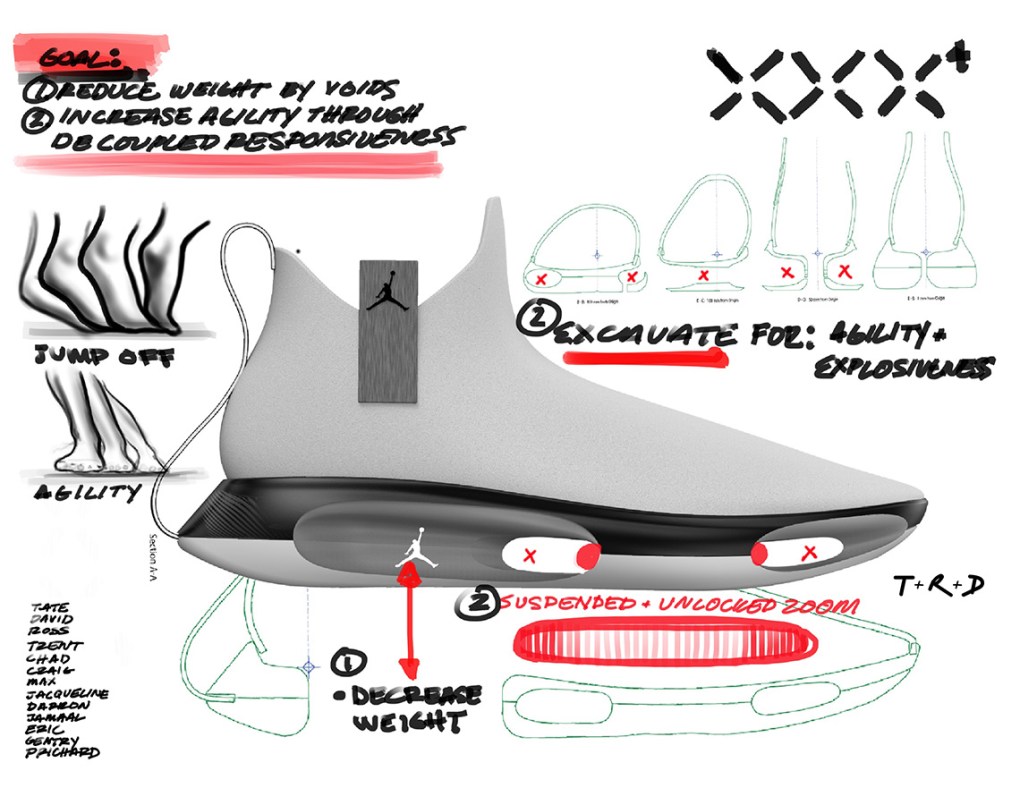 GOAL:
① REDUCE WEIGHT BY VOIDS
② INCREASE AGILITY THROUGH
DECOUPLED RESPONSIVENESS
JUMP OFF
AGILITY
② EXCAVATE FOR: AGILITY +
EXPLOSIVENESS
X X X
X X
Section A-A
X X
T+R+D
② SUSPENDED + UNLOCKED ZOOM
① • DECREASE
WEIGHT
TATE
DAVID
ROSS
TRENT
CHAD
CRAIG
MAX
JACQUELINE
DARRON
JAMAAL
ERIC
GENTRY
PRICHARD